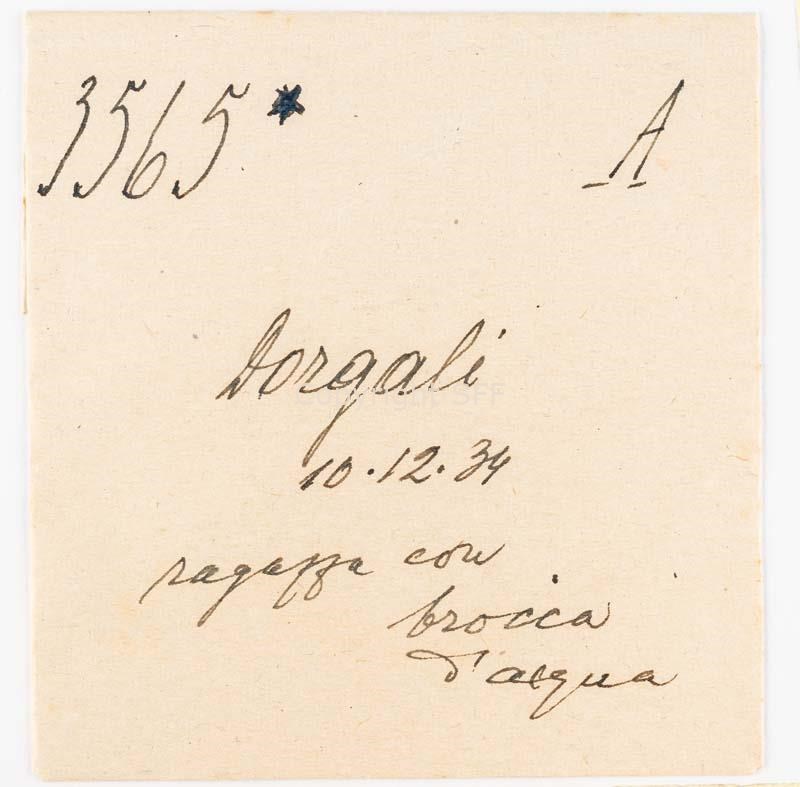 3565* A
Dorgali
10.12.34
ragazza con
brocca
d'acqua